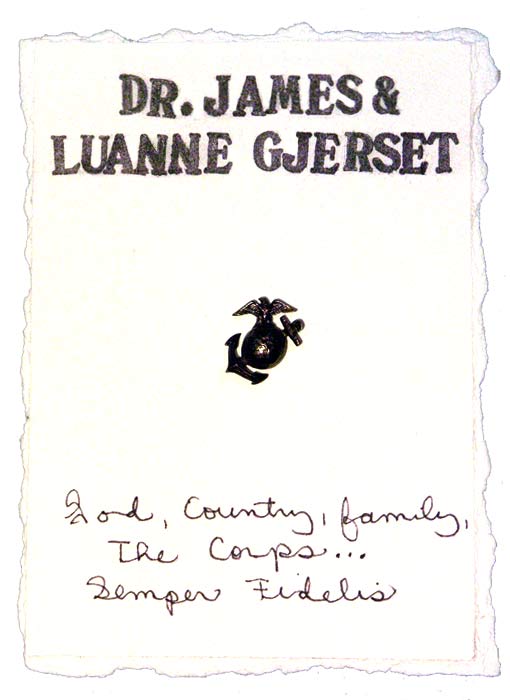 DR. JAMES &
LUANNE GJERSET
God, Country, family,
The Corps...
Semper Fidelis